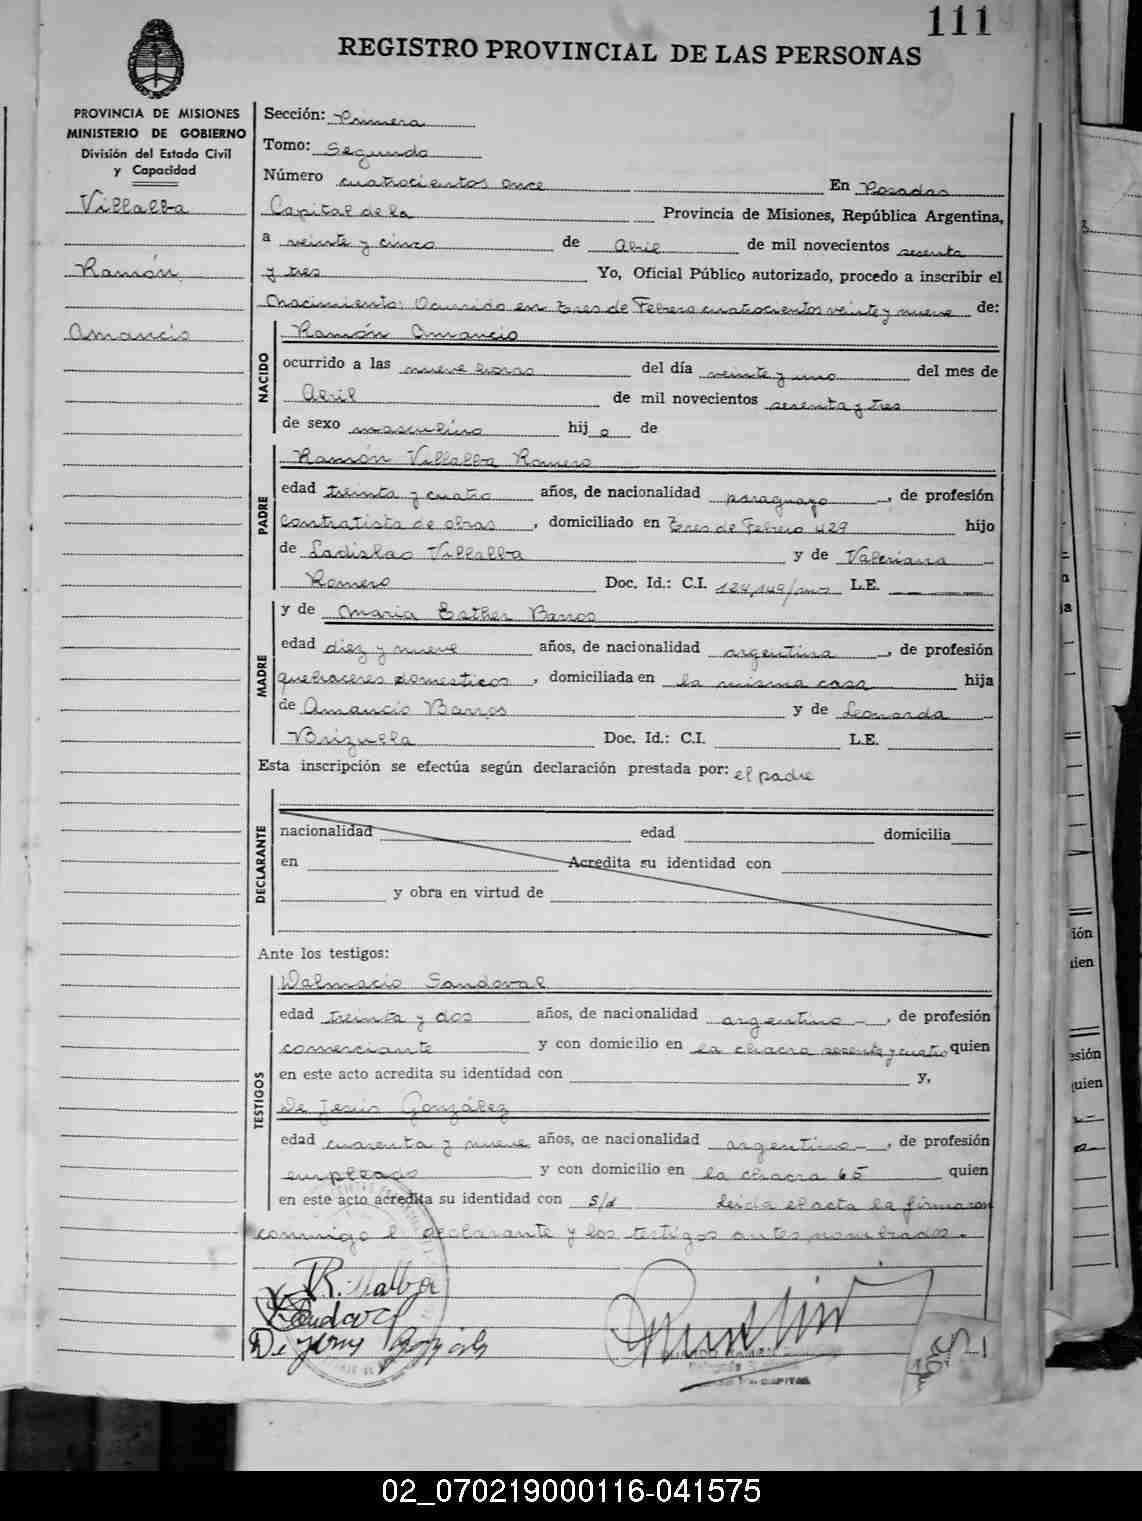 111
REGISTRO PROVINCIAL DE LAS PERSONAS
PROVINCIA DE MISIONES
MINISTERIO DE GOBIERNO
División del Estado Civil
y Capacidad
Villalba
Ramón
Amancio
Sección: Primera
Tomo: Segundo
Número cuatrocientos once En Posadas
Capital de la Provincia de Misiones, República Argentina,
a veinte y cinco de Abril de mil novecientos sesenta
y tres Yo, Oficial Público autorizado, procedo a inscribir el
Nacimiento: Ocurrido en Tres de Febrero cuatrocientos veinte y nueve de:
NACIDO
Ramón Amancio
ocurrido a las nueve horas del día veinte y uno del mes de
Abril de mil novecientos sesenta y tres
de sexo masculino hijo de
PADRE
Ramón Villalba Romero
edad treinta y cuatro años, de nacionalidad paraguayo, de profesión
contratista de obras, domiciliado en Tres de Febrero 429 hijo
de Ladislao Villalba y de Valeriana
Romero Doc. Id.: C.I. L.E.
MADRE
y de Maria Esther Barros
edad diez y nueve años, de nacionalidad argentina, de profesión
quehaceres domesticos, domiciliada en la misma casa hija
de Amancio Barros y de Leonarda
Brizuela Doc. Id.: C.I. L.E.
Esta inscripción se efectúa según declaración prestada por: el padre
DECLARANTE
nacionalidad edad domicilia
en Acredita su identidad con
y obra en virtud de
Ante los testigos:
TESTIGOS
Dalmacio Sandoval
edad treinta y dos años, de nacionalidad argentino, de profesión
comerciante y con domicilio en la chacra sesenta y cuatro quien
en este acto acredita su identidad con y,
De Jesús González
edad cuarenta y nueve años, de nacionalidad argentino, de profesión
empleado y con domicilio en la chacra 65 quien
en este acto acredita su identidad con s/d leída el acta la firmaron
conmigo el declarante y los testigos antes nombrados.
De Jesus
CAPITAL
02_070219000116-041575